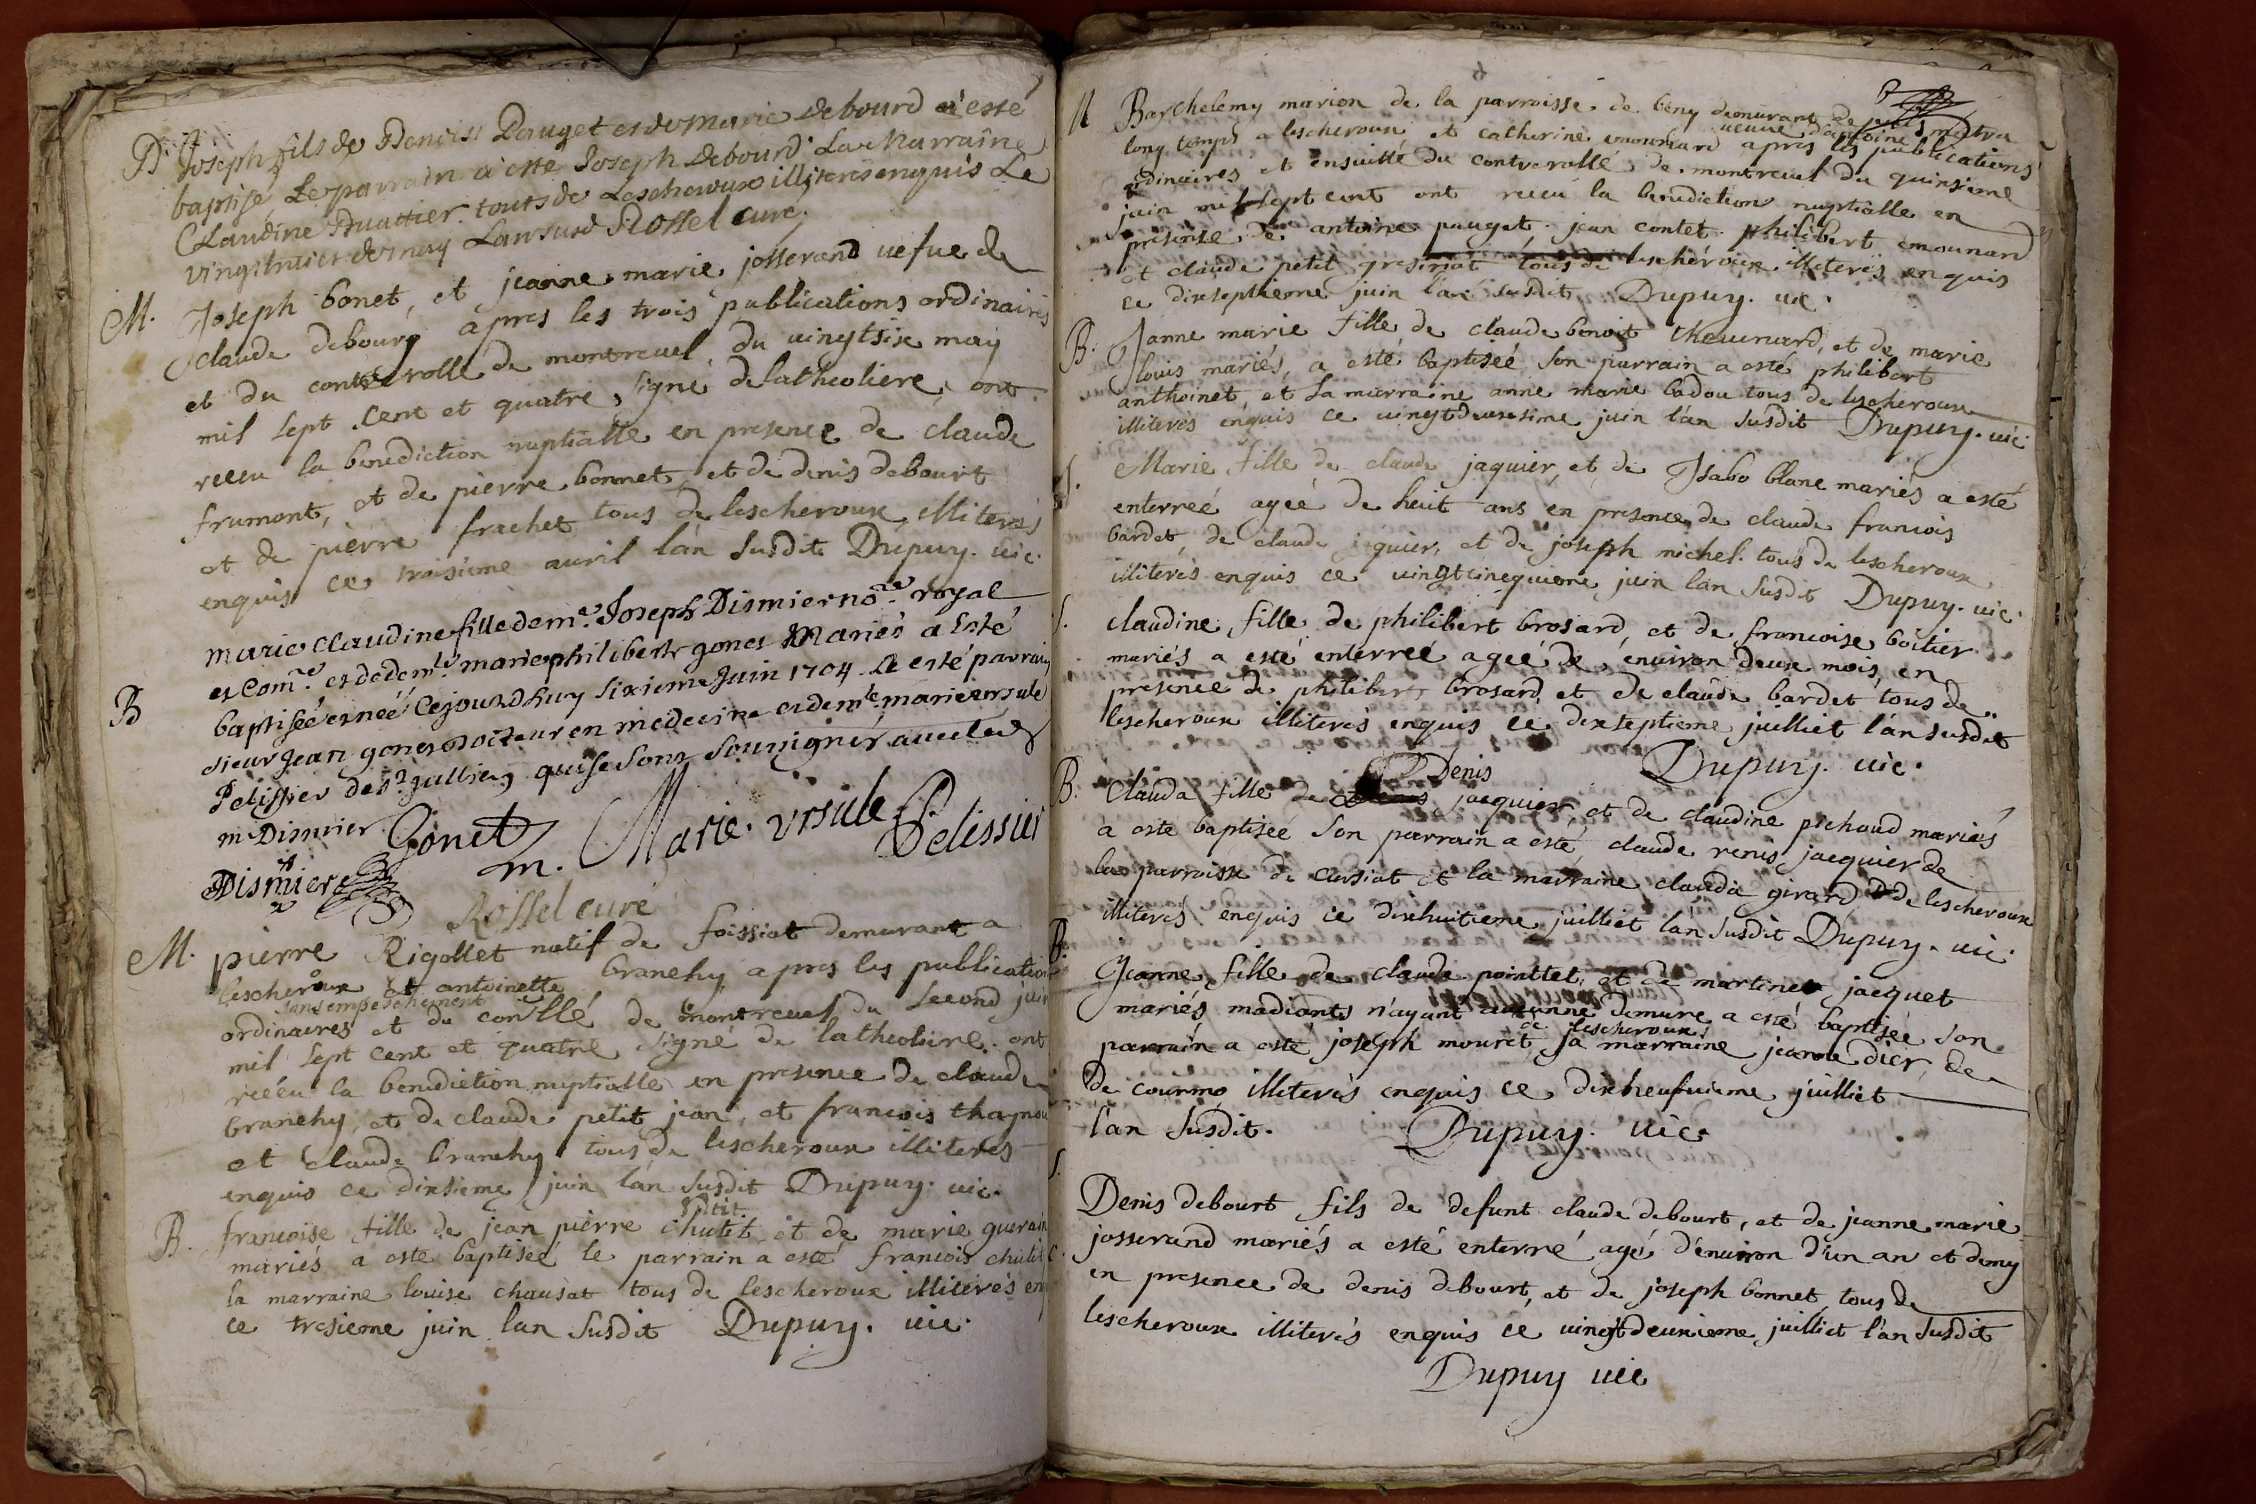 B Joseph fils de Denis Pauget et de Marie debourd a esté
baptisé Le parrain a esté Joseph debourd La Marraine
Claudine Buattier touts de Lescheroux illiterés enquis Le
vingthuict de may Lan susd Rossel curé
M. Joseph bonet, et jeanne marie josserand uefue de
claude debourg apres les trois publications ordinaires
et du contrerollé de montreuel, du uingtsix may
mil sept cent et quatre, signé delatheoliere, ont
receu la benediction nuptialle en presence de claude
frumont, et de pierre bonnet, et de denis debourt
et de pierre frachet tous de lescheroux illiterés
enquis ce troisieme auril lan susdit Dupuy. uic.
marie claudine fille de mr. Joseph Dismier no.re royal
B et Com.re et de dem.le marie philiberte gonet Mariés a Esté
baptiséé et néé Cejourdhuy sixieme Juin 1704 a esté parrain
sieur Jean gonet docteur en médecine et dem.le marie ursule
Pelissier de s.r jullien qui se sont soussignés avec led
m Dismier Gonet m. Marie. ursule Pelissier
Dismier
Rossel curé
M. pierre Rigollet natif de foissiat demurant a
lescheroux et antoinette branchy apres les publication
sans empeschement
ordinaires et du con.llé de montreuel du second juin
mil sept cent et quatre signé de latheoliere. ont
recéu la benediction nuptialle en presence de claude
branchy, et de claude petit jean, et francois thagnou
et claude branchy tous de lescheroux illiteres
enquis ce dixsieme juin lán susdit Dupuy. uic.
petit
B. francoise fille de jean pierre chutet et de marie guerain
mariés a esté baptisée le parrain a esté francois chutet
la marraine louise chausat tous de lescheroux illiterés en
ce tresieme juin lan susdit Dupuy. uic.
M Barthelemy marion de la parroisse de beny demurant depuis
ueuue dantoine mitra
long temps a lescheroux et catherine emounard apres les publications
ordinaires et ensuitté du contrerollé de montreuel du quinsieme
juin mil sept cent ont receu la benediction nuptialle en
presence de antoine pauget. jean contet. philibert emounard
et claude petit gresiriat tous de lescheroux illiterés enquis
ce dixseptieme juin lán susdit Dupuy. uic.
B. Janne marie fille de claude benoit thouunard, et de marie
louis mariés, a esté baptiséé son parrain a esté philibert
anthoinet, et sa marraine anne marie badou tous de lescheroux
illiterés enquis ce uingtdeuxsieme juin lán susdit Dupuy. uic.
S. Marie fille de claude jaquier, et de Isabo blanc mariés a esté
enterreé ageé de huit ans en presence de claude francois
bardet, de claude jaquier, et de joseph michel. tous de lescheroux
illiterés enquis ce uingtcinequieme juin lan susdit Dupuy. uic.
S. claudine, fille de philibert brosard, et de francoise boitier
mariés a esté enterreé ageé de énuiron deux mois, en
presence de philibert brosard, et de claude bardet tous de
lescheroux illiterés enquis ce dixseptieme juilliet l'án susdit
Dupuy. uic.
Denis
B. Clauda fille de Denis jacquier, et de claudine pichoud mariés
a esté baptiseé son parrain a esté, claude renis jacquier de
la parroisse de cursiat et la marraine clauda girard de lescheroux
illiterés enquis ce dixhuitieme juilliet lán susdit Dupuy. uic.
B. Jeanne fille de claude pointtet, et de martine jacquet
mariés madiants n'ayant aucunne demure a esté baptisée son
de lescheroux
parrain a esté joseph mouret, sa marraine jeanne dier, de
de courmo illiterés enquis ce dixneufuieme juilliet
l'an susdit. Dupuy. uic.
S.
Denis debourt fils de defunt claude debourt, et de jeanne marie
josserand mariés a esté enterré agé d'énuiron d'un an et demy
en presence de denis debourt, et de joseph bonnet tous de
lescheroux illiterés enquis ce uingtdeuxieme juilliet l'án susdit
Dupuy uic